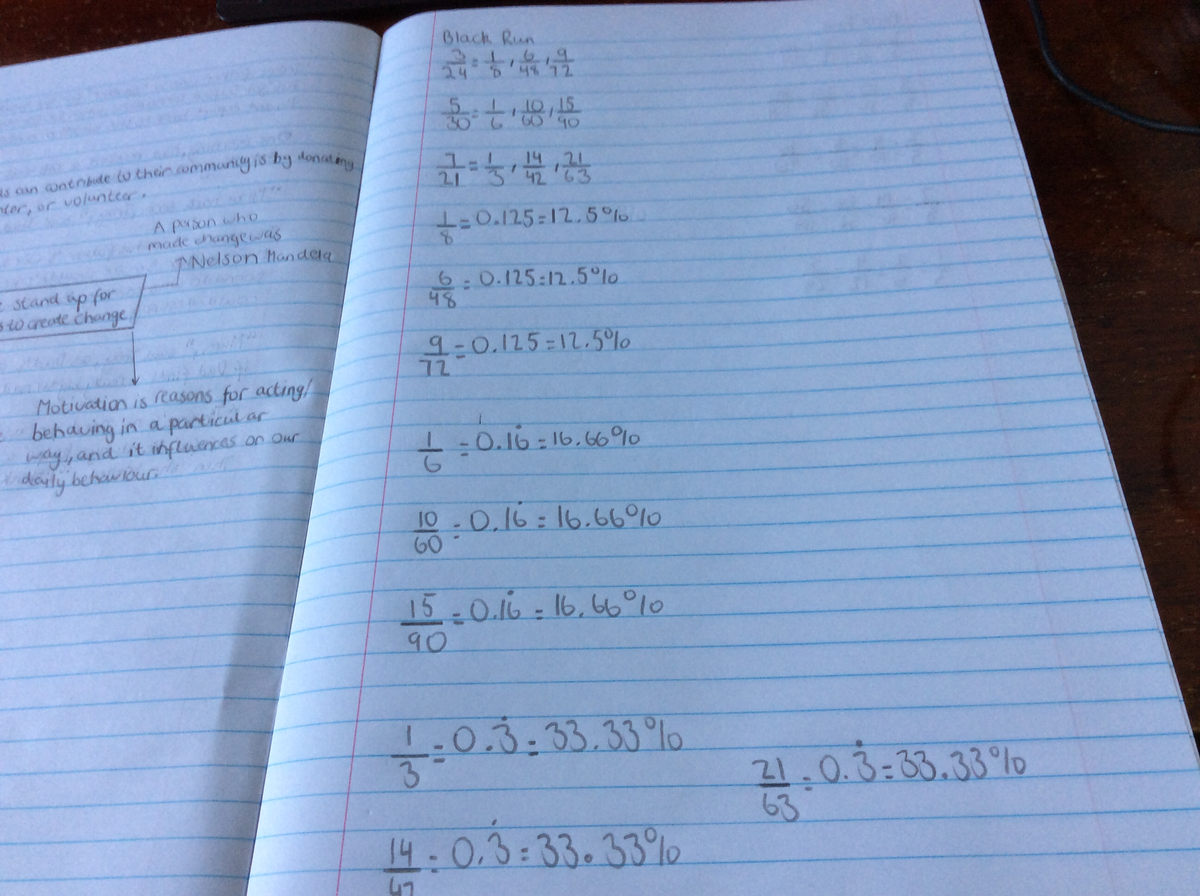 is can contribute to their community is by donating
or volunteer.
A person who
made change was
Nelson Mandela
stand up for
to create change
Motivation is reasons for acting/
behaving in a particular
way, and it influences on our
daily behaviour.
Black Run
3/24 = 1/8, 6/48, 9/72
5/30 = 1/6, 10/60, 15/90
7/21 = 1/3, 14/42, 21/63
1/8 = 0.125 = 12.5%
6/48 = 0.125 = 12.5%
9/72 = 0.125 = 12.5%
1/6 = 0.16̇ = 16.66%
10/60 = 0.16̇ = 16.66%
15/90 = 0.16̇ = 16.66%
1/3 = 0.3̇ = 33.33%
21/63 = 0.3̇ = 33.33%
14/42 = 0.3̇ = 33.33%